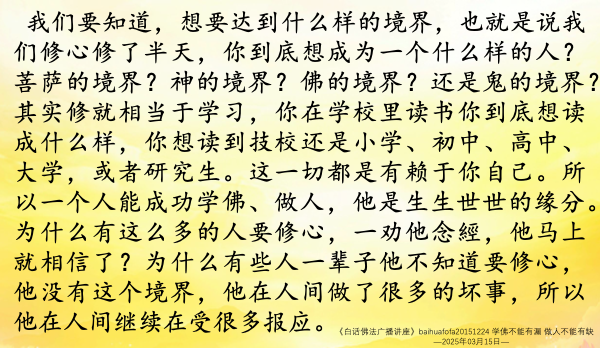 我们要知道，想要达到什么样的境界，也就是说我
们修心修了半天，你到底想成为一个什么样的人？
菩萨的境界？神的境界？佛的境界？还是鬼的境界？
其实修就相当于学习，你在学校里读书你到底想读
成什么样，你想读到技校还是小学、初中、高中、
大学，或者研究生。这一切都是有赖于你自己。所
以一个人能成功学佛、做人，他是生生世世的缘分。
为什么有这么多的人要修心，一劝他念經，他马上
就相信了？为什么有些人一辈子他不知道要修心，
他没有这个境界，他在人间做了很多的坏事，所以
他在人间继续在受很多报应。
《白话佛法广播讲座》baihuafofa20151224 学佛不能有漏 做人不能有缺
—2025年03月15日—